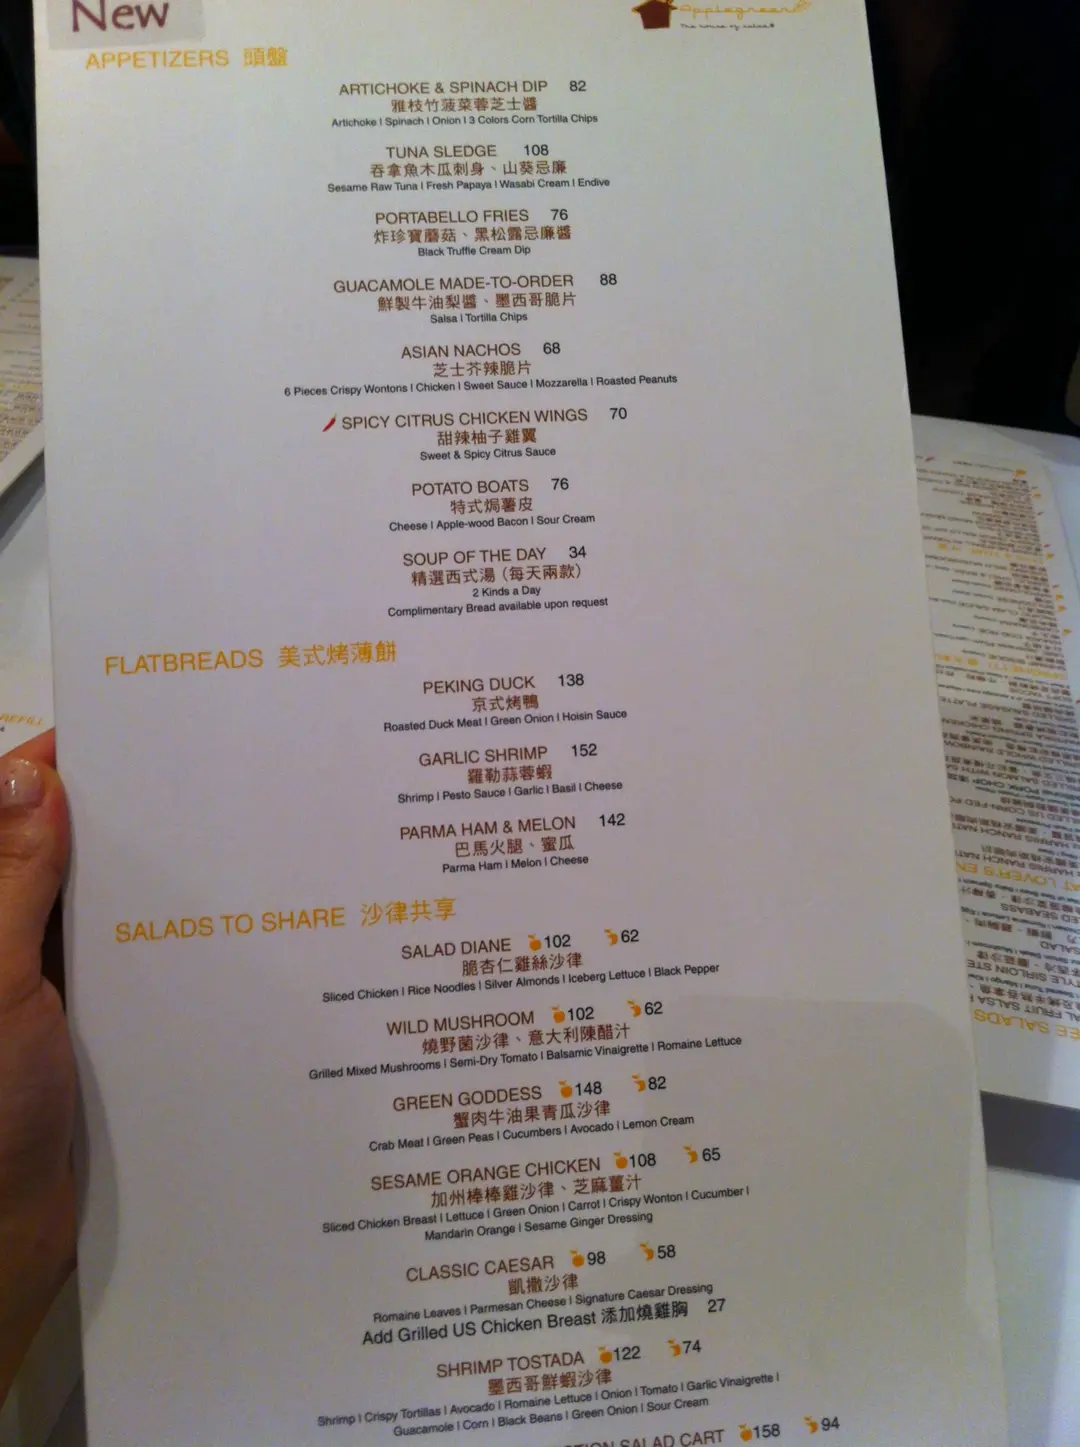 New
Applegreen
The house of salads
APPETIZERS 頭盤
ARTICHOKE & SPINACH DIP 82
雅枝竹菠菜蓉芝士醬
Artichoke | Spinach | Onion | 3 Colors Corn Tortilla Chips
TUNA SLEDGE 108
吞拿魚木瓜刺身、山葵忌廉
Sesame Raw Tuna | Fresh Papaya | Wasabi Cream | Endive
PORTABELLO FRIES 76
炸珍寶蘑菇、黑松露忌廉醬
Black Truffle Cream Dip
GUACAMOLE MADE-TO-ORDER 88
鮮製牛油梨醬、墨西哥脆片
Salsa | Tortilla Chips
ASIAN NACHOS 68
芝士芥辣脆片
6 Pieces Crispy Wontons | Chicken | Sweet Sauce | Mozzarella | Roasted Peanuts
SPICY CITRUS CHICKEN WINGS 70
甜辣柚子雞翼
Sweet & Spicy Citrus Sauce
POTATO BOATS 76
特式焗薯皮
Cheese | Apple-wood Bacon | Sour Cream
SOUP OF THE DAY 34
精選西式湯 (每天兩款)
2 Kinds a Day
Complimentary Bread available upon request
FLATBREADS 美式烤薄餅
PEKING DUCK 138
京式烤鴨
Roasted Duck Meat | Green Onion | Hoisin Sauce
GARLIC SHRIMP 152
羅勒蒜蓉蝦
Shrimp | Pesto Sauce | Garlic | Basil | Cheese
PARMA HAM & MELON 142
巴馬火腿、蜜瓜
Parma Ham | Melon | Cheese
SALADS TO SHARE 沙律共享
SALAD DIANE 102 62
脆杏仁雞絲沙律
Sliced Chicken | Rice Noodles | Silver Almonds | Iceberg Lettuce | Black Pepper
WILD MUSHROOM 102 62
燒野菌沙律、意大利陳醋汁
Grilled Mixed Mushrooms | Semi-Dry Tomato | Balsamic Vinaigrette | Romaine Lettuce
GREEN GODDESS 148 82
蟹肉牛油果青瓜沙律
Crab Meat | Green Peas | Cucumbers | Avocado | Lemon Cream
SESAME ORANGE CHICKEN 108 65
加州棒棒雞沙律、芝麻薑汁
Sliced Chicken Breast | Lettuce | Green Onion | Carrot | Crispy Wonton | Cucumber |
Mandarin Orange | Sesame Ginger Dressing
CLASSIC CAESAR 98 58
凱撒沙律
Romaine Leaves | Parmesan Cheese | Signature Caesar Dressing
Add Grilled US Chicken Breast 添加燒雞胸 27
SHRIMP TOSTADA 122 74
墨西哥鮮蝦沙律
Shrimp | Crispy Tortillas | Avocado | Romaine Lettuce | Onion | Tomato | Garlic Vinaigrette |
Guacamole | Corn | Black Beans | Green Onion | Sour Cream
SALAD CART 158 94